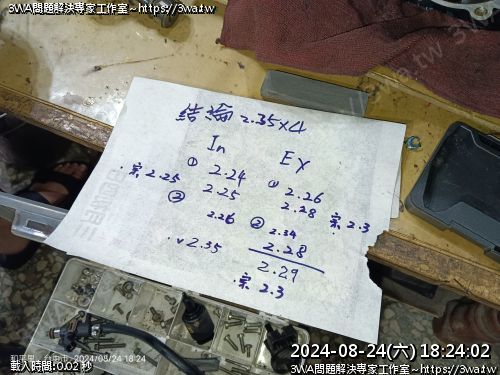 3WA問題解決專家工作室~https://3wa.tw
結論 2.35×4
In EX
① 2.24 ① 2.26
.京 2.25 2.25 2.28 京 2.3
② 2.26 ② 2.34
.v 2.35 2.28
2.29
.京 2.3
台中市 2024/08/24 18:24
2024-08-24(六) 18:24:02
載入時間:0.02 秒
3WA問題解決專家工作室~https://3wa.tw